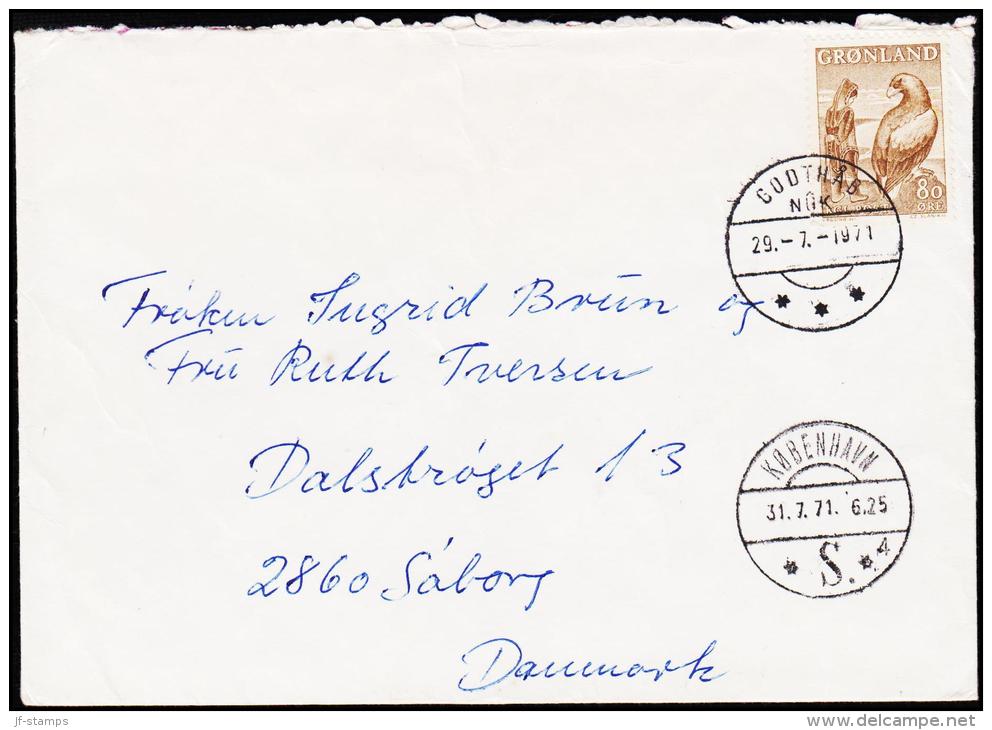 GRØNLAND
80
ØRE
GODTHÅB
NÛK
29.-7.-1971
Fröken Ingrid Brün og
Frü Ruth Iversen
Dalströget 13
2860 Söborg
Danmark
KØBENHAVN
31.7.71. 6.25
* S. * 4
jf-stamps
www.delcampe.net